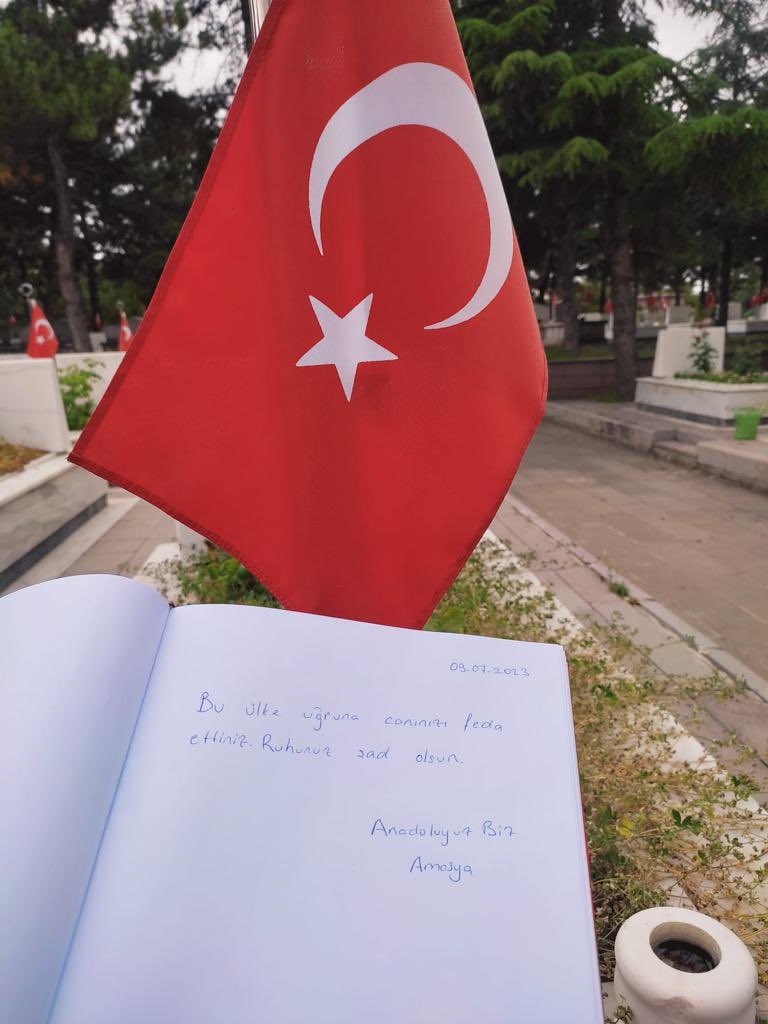 09.07.2023
Bu ülke uğruna canınızı feda
ettiniz. Ruhunuz şad olsun.
Anadoluyuz Biz
Amasya